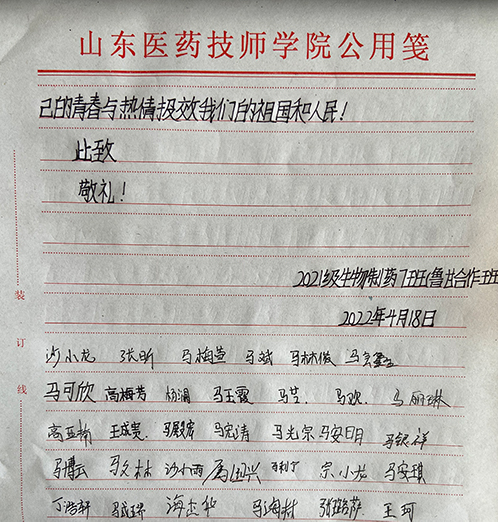 山东医药技师学院公用笺
己的青春与热情报效我们的祖国和人民!
此致
敬礼!
2021级生物制药 班(鲁 合作班
2022年4月18日
装
沙小龙 张昕 马梅 马斌 马林俊
订
马可欣 高梅芳 杨润 马玉霞 马兰 马欢 马丽琳
线
高亚楠 王成贵 马宏清 马光宗 马安明 马银祥
马博云 马文林 沙小雨 宗小龙 马安琪
丁浩轩 马成瑞 海志华 马海林 张皓萨 王珂